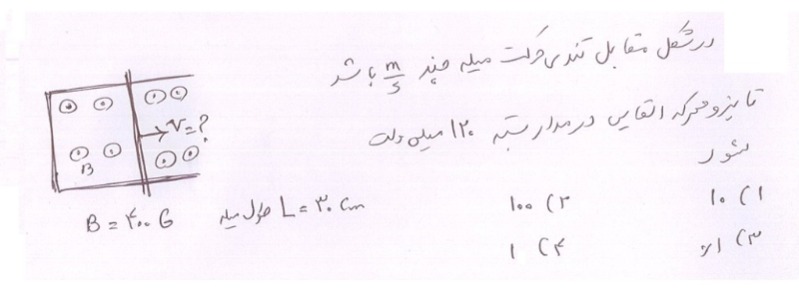 در شکل مقابل تندی حرکت میله چند m/s باشد
تا نیرو محرکه القایی در مدار بسته ۱۲۰ میلی ولت
شود
B
V=?
B = ۴۰۰ G
L = ۳۰ cm طول میله
۱) ۱۰
۲) ۱۰۰
۳) ۰/۱
۴) ۱